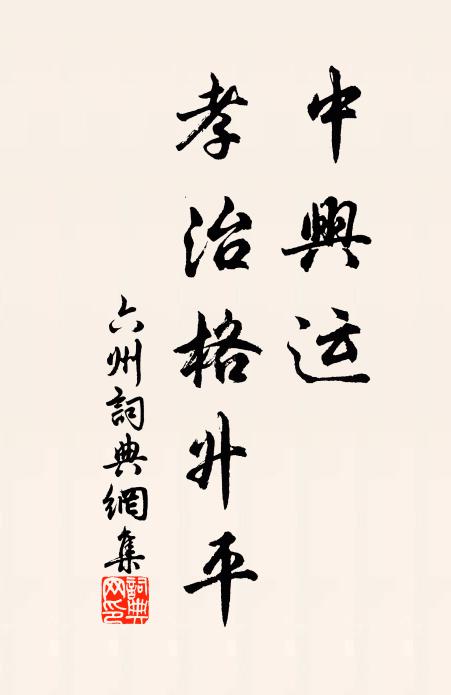 中興运
孝治格升平
六州詞典網集
詞典网印